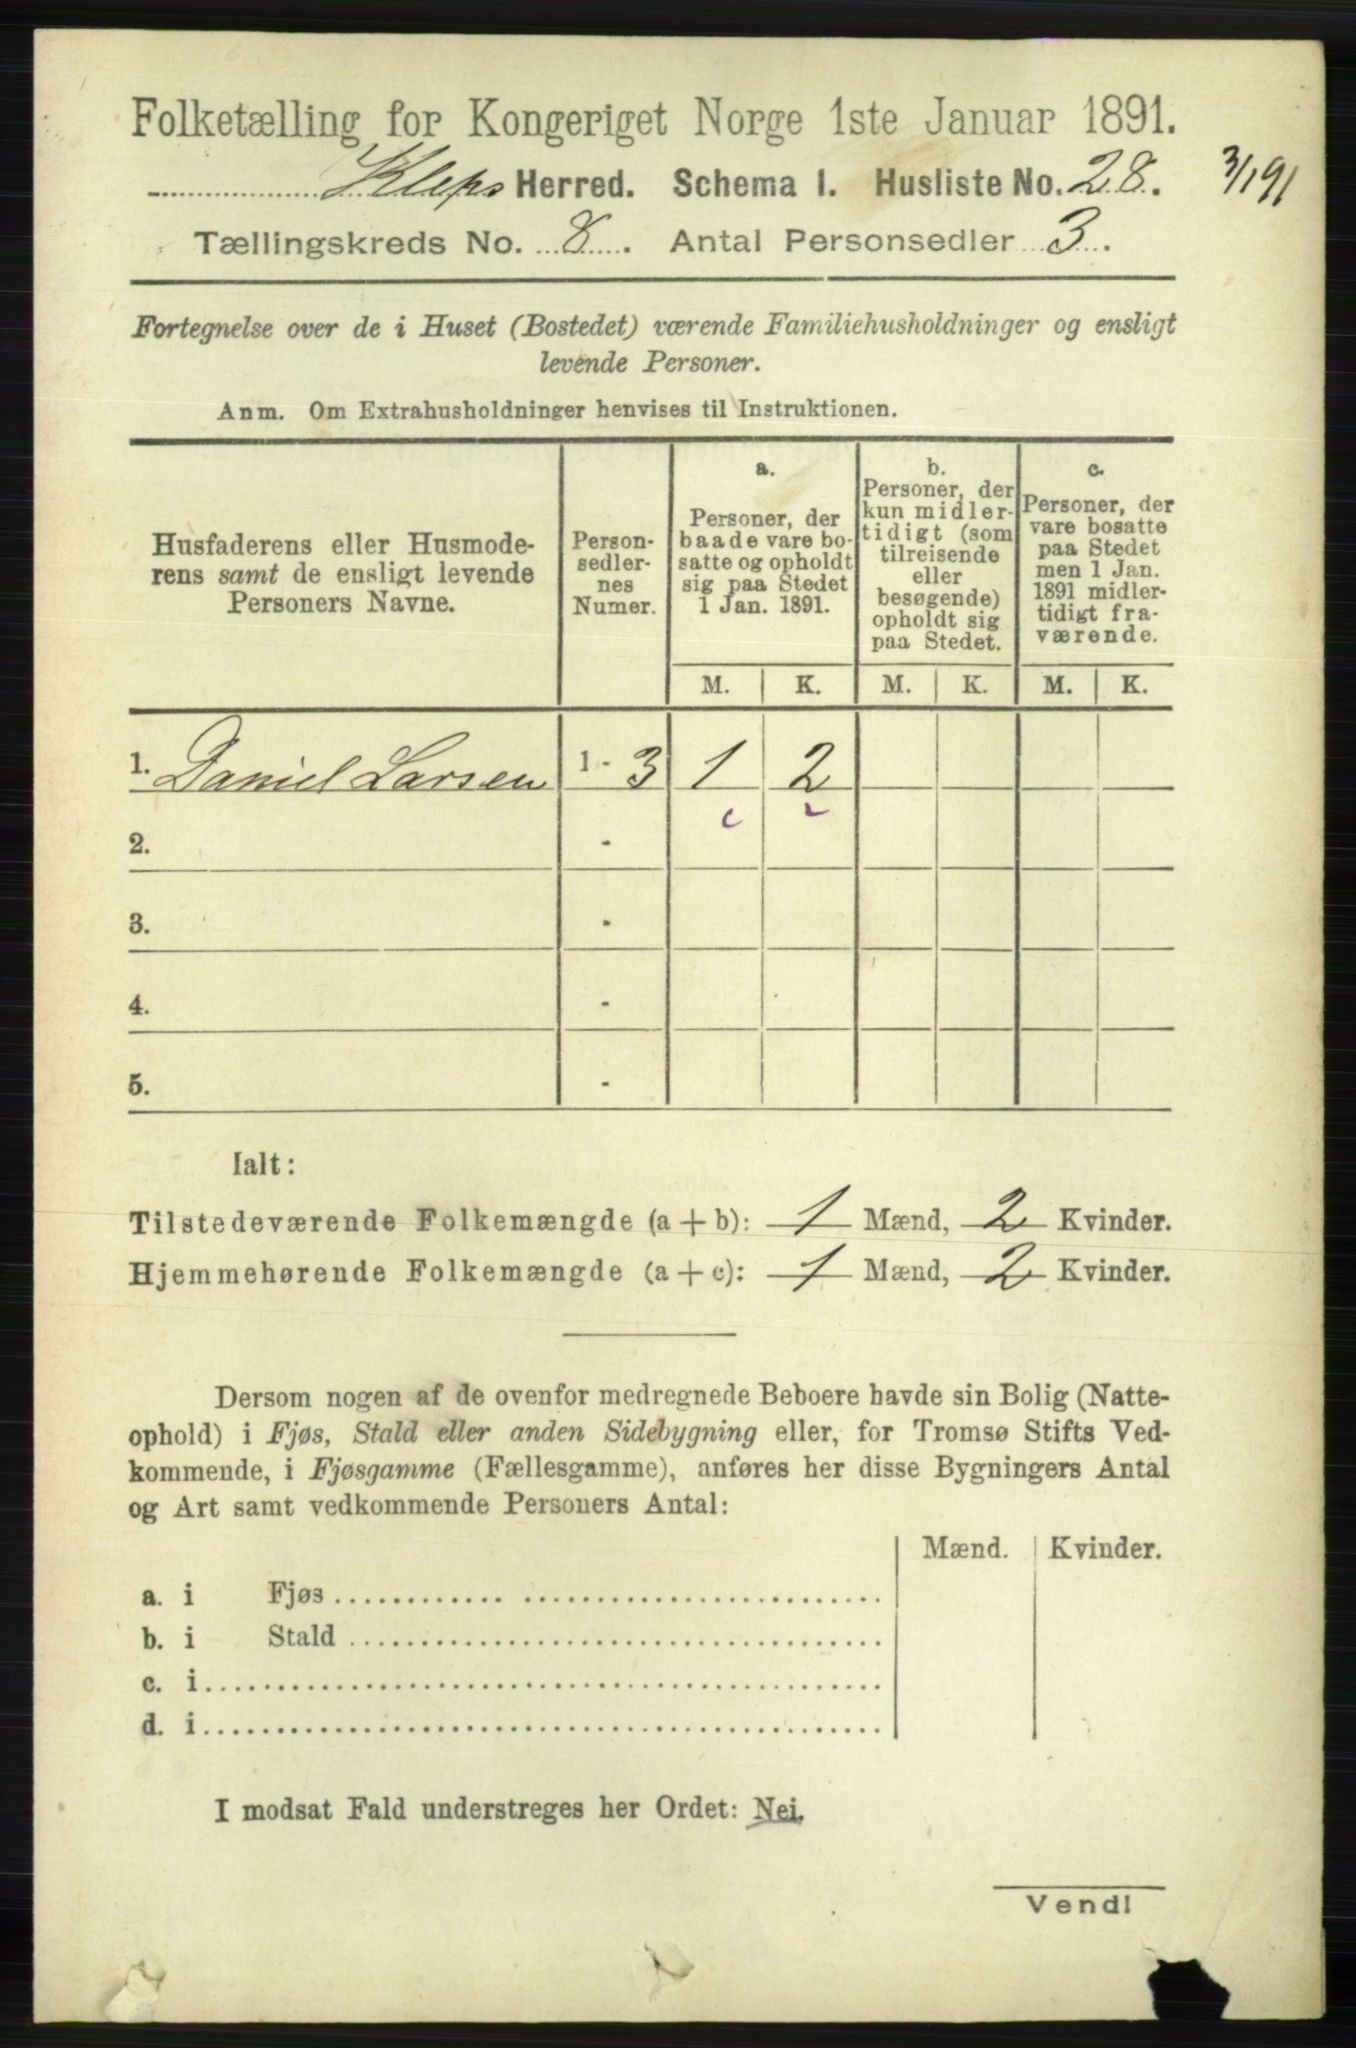 Folketælling for Kongeriget Norge 1ste Januar 1891.
Kleps Herred. Schema I. Husliste No. 28. 3/1 91
Tællingskreds No. 8. Antal Personsedler 3.
Fortegnelse over de i Huset (Bostedet) værende Familiehusholdninger og ensligt
levende Personer.
Anm. Om Extrahusholdninger henvises til Instruktionen.
Husfaderens eller Husmode-
rens samt de ensligt levende
Personers Navne.
Person-
sedler-
nes
Numer.
a.
Personer, der
baade vare bo-
satte og opholdt
sig paa Stedet
1 Jan. 1891.
b.
Personer, der
kun midler-
tidigt (som
tilreisende
eller
besøgende)
opholdt sig
paa Stedet.
c.
Personer, der
vare bosatte
paa Stedet
men 1 Jan.
1891 midler-
tidigt fra-
værende.
M. K. M. K. M. K.
1. Daniel Larsen 1 - 3 1 2
2. -
3. -
4. -
5. -
Ialt:
Tilstedeværende Folkemængde (a + b): 1 Mænd, 2 Kvinder.
Hjemmehørende Folkemængde (a + c): 1 Mænd, 2 Kvinder.
Dersom nogen af de ovenfor medregnede Beboere havde sin Bolig (Natte-
ophold) i Fjøs, Stald eller anden Sidebygning eller, for Tromsø Stifts Ved-
kommende, i Fjøsgamme (Fællesgamme), anføres her disse Bygningers Antal
og Art samt vedkommende Personers Antal:
Mænd. Kvinder.
a. i Fjøs
b. i Stald
c. i
d. i
I modsat Fald understreges her Ordet: Nei.
Vend!